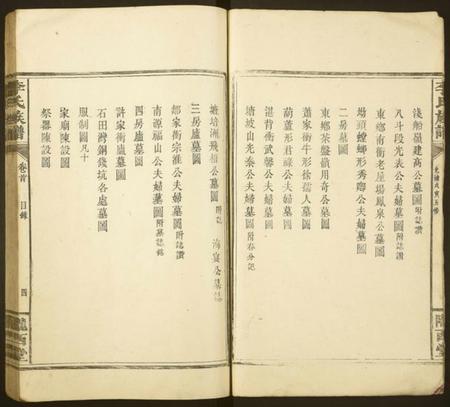 李氏族譜
光緒戊寅五修
隴西堂
淺船嶺建高公墓圖附誌讚
八斗段光表公夫婦墓圖附誌讚
東鄉南衝老屋場鳳泉公墓圖
塲頭螳螂形秀卿公夫婦墓圖
二房墓圖
東鄉茶盤嶺用奇公墓圖
蕭家衝牛形徐孺人墓圖
葫蘆形君祿公夫婦墓圖
湛背衝武馨公夫婦墓圖
塘坡山光泰公夫婦墓圖附春分記
塘培洲飛相公墓圖附誌 海宴公墓誌
三房廬墓圖
鄒家衝宗淮公夫婦墓圖附誌讚
南源福山公夫婦墓圖附墓誌銘
四房廬墓圖
許家衝墓圖
石田灣銅錢坑各處墓圖
服制圖凡十
家廟陳設圖
祭器陳設圖
李氏族譜
卷首 目錄
四
隴西堂